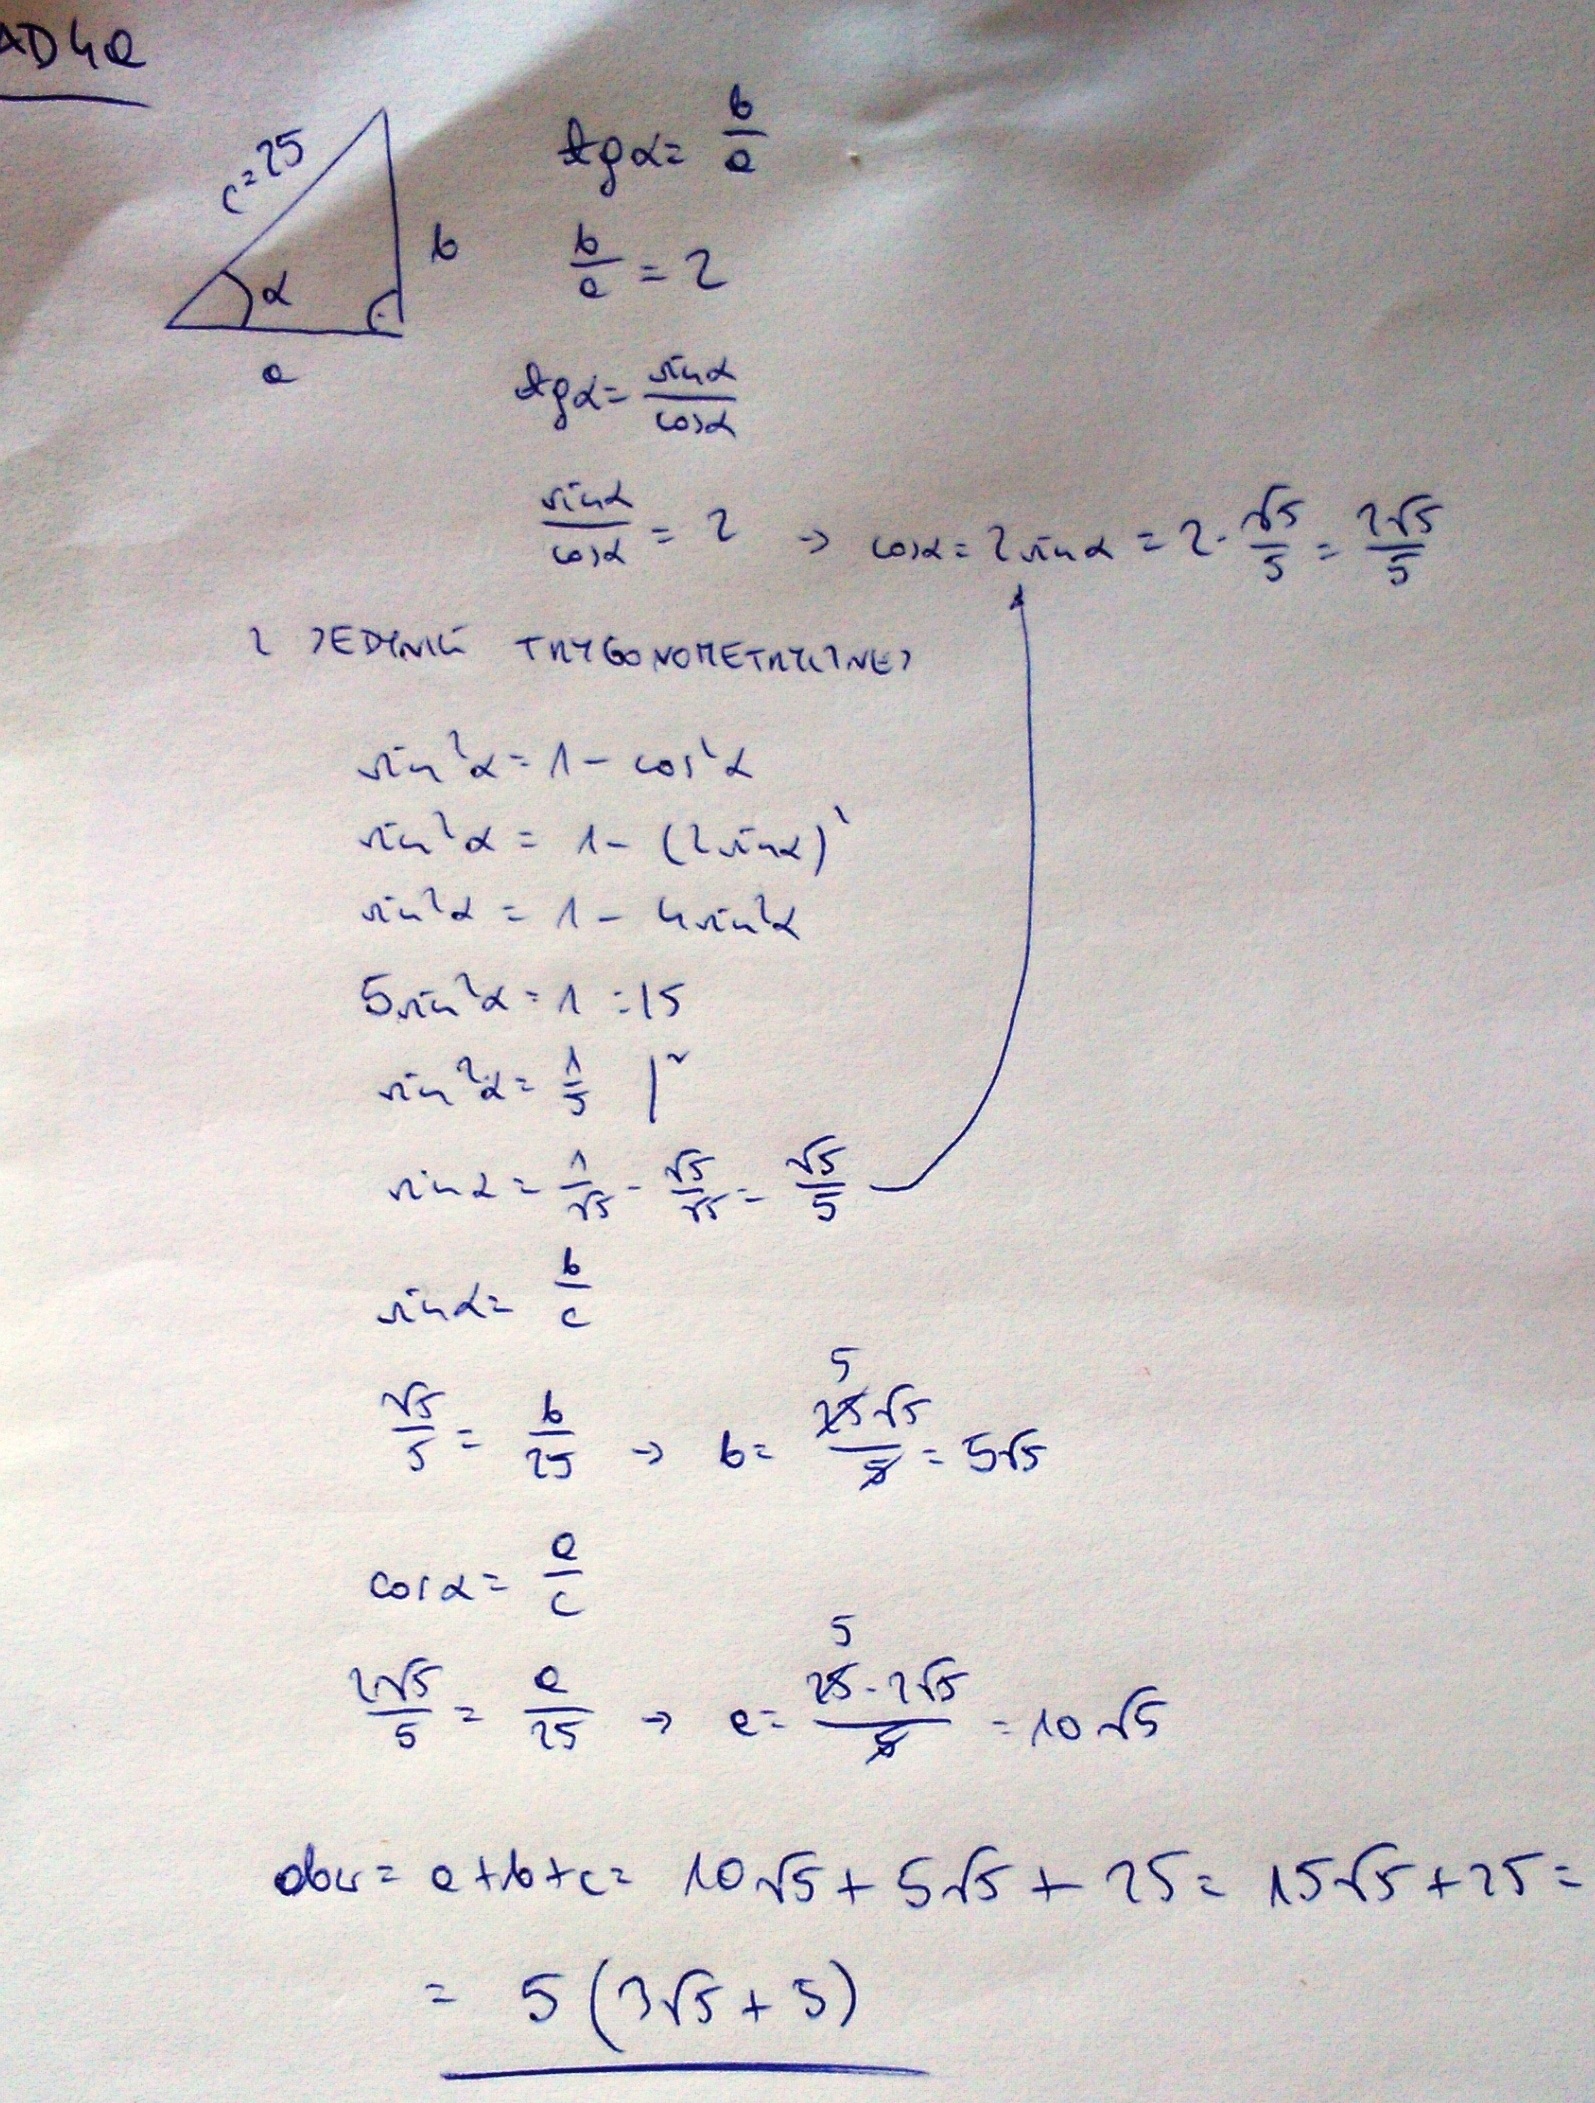 AD4a
c=25
α
b
a
tgα = b/a
b/a = 2
tgα = sinα/cosα
sinα/cosα = 2 → cosα = 2sinα = 2·√5/5 = 2√5/5
Z JEDYNKI TRYGONOMETRYCZNEJ
sin²α = 1 - cos²α
sin²α = 1 - (2sinα)²
sin²α = 1 - 4sin²α
5sin²α = 1 :15
sin²α = 1/5
sinα = 1/√5 · √5/√5 = √5/5
sinα = b/c
√5/5 = b/25 → b = 25√5/5 = 5√5
5
cosα = a/c
2√5/5 = a/25 → a = 25·2√5/5 = 10√5
5
obw = a+b+c = 10√5 + 5√5 + 25 = 15√5 + 25 =
= 5(3√5 + 5)